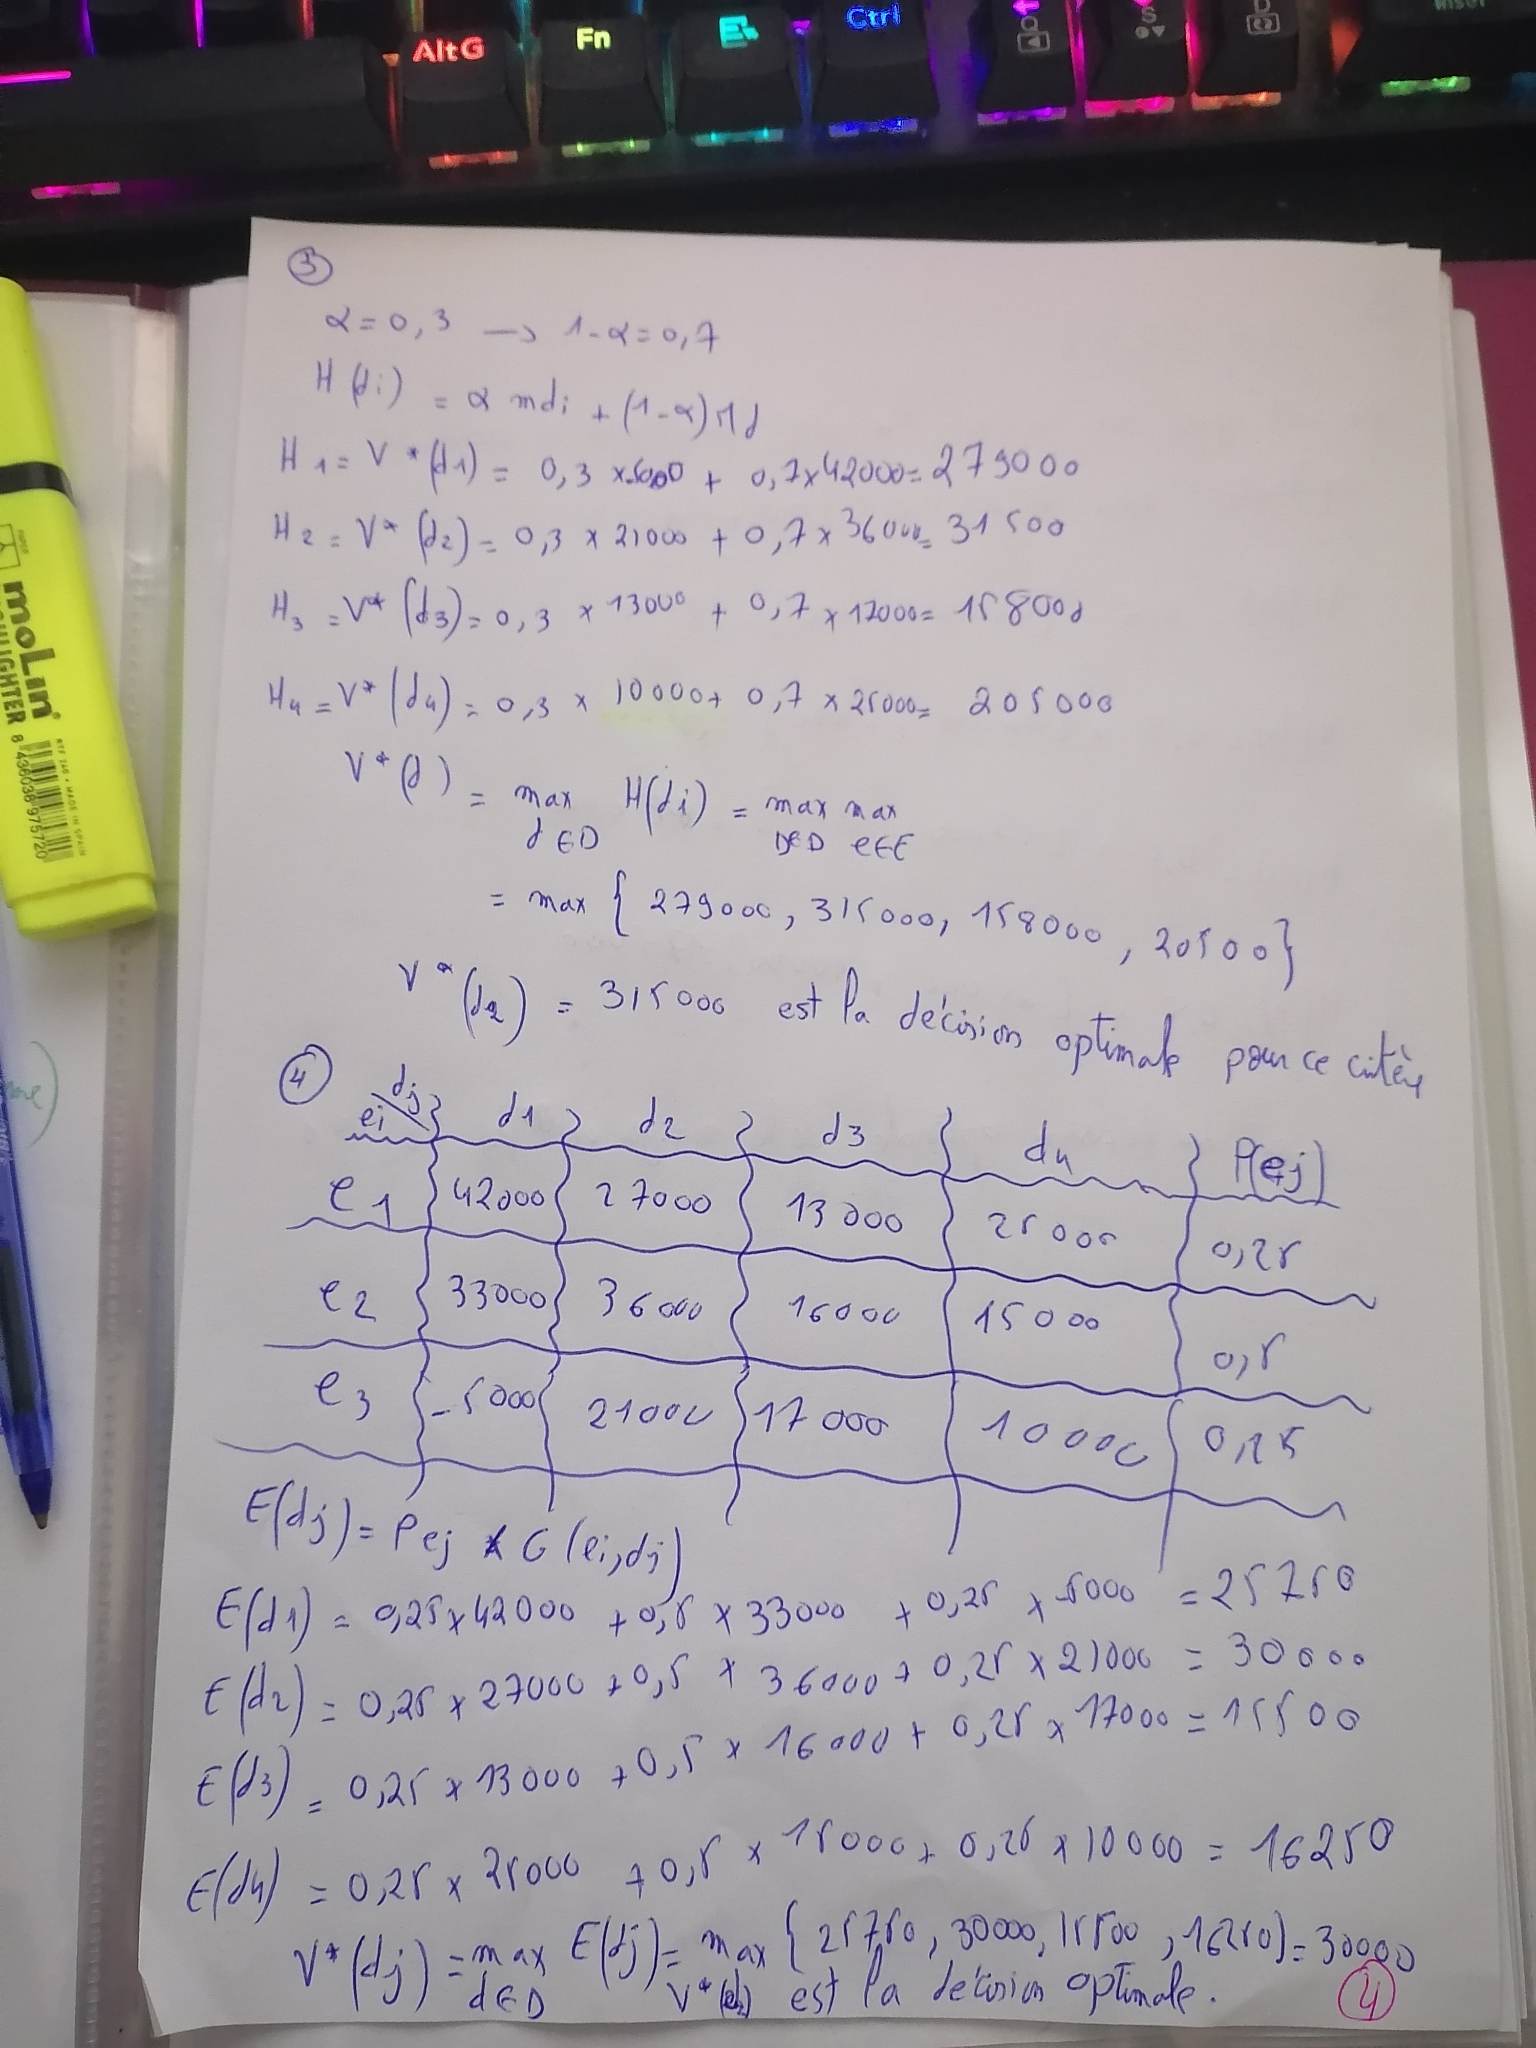 AltG Fn Ctrl
③
α = 0,3 → 1-α = 0,7
H(di) = α mdi + (1-α) Md
H1 = V*(d1) = 0,3 x-5000 + 0,7x42000 = 279000
H2 = V*(d2) = 0,3 x 21000 + 0,7 x 36000 = 31500
H3 = V*(d3) = 0,3 x 13000 + 0,7 x 17000 = 158000
H4 = V*(d4) = 0,3 x 10000 + 0,7 x 25000 = 205000
V*(d) = max H(di) = max max
d∈D D∈D e∈E
= max { 279000, 315000, 158000, 20500}
V*(d2) = 315000 est la décision optimale pour ce critère
④
ei dj d1 d2 d3 d4 P(ej)
e1 42000 27000 13000 25000 0,25
e2 33000 36000 16000 15000 0,5
e3 -5000 21000 17000 10000 0,25
E(dj) = Pej x G(ei,dj)
E(d1) = 0,25x42000 + 0,5 x 33000 + 0,25 x -5000 = 25750
E(d2) = 0,25 x 27000 + 0,5 x 36000 + 0,25 x 21000 = 30000
E(d3) = 0,25 x 13000 + 0,5 x 16000 + 0,25 x 17000 = 15500
E(d4) = 0,25 x 25000 + 0,5 x 15000 + 0,25 x 10000 = 16250
V*(dj) = max E(dj) = max {25750, 30000, 15500, 16250} = 30000
d∈D V*(d2) est la décision optimale.
4
moLin
HIGHLIGHTER
8 436038 975720
MADE IN SPAIN